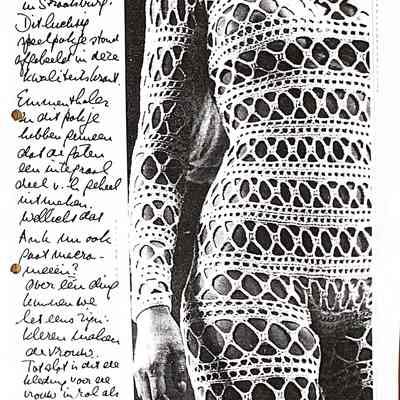 in Straatsburg.
Dit luchtig
speelpakje stond
afgebeeld in deze
kwaliteitskrant.
Emmenthaler
en dit pakje
hebben gemeen
dat de gaten
een integraal
deel v. h. geheel
uitmaken.
Wellicht dat
Anh nu ook
gaat macra-
meeën?
Over een ding
kunnen we
het eens zijn:
kleren maken
de vrouw.
Tot slot is dit de
kleding voor de
vrouw in rol als